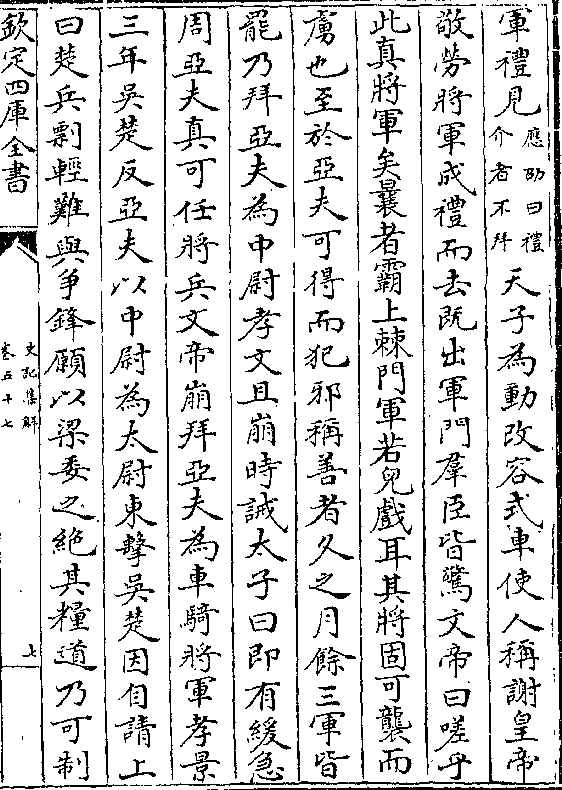 軍禮見應劭曰禮介者不拜天子為動改容式車使人稱謝皇帝
敬勞將軍成禮而去既出軍門羣臣皆驚文帝曰嗟乎
此真將軍矣曩者霸上棘門軍若兒戲耳其將固可襲而
虜也至於亞夫可得而犯邪稱善者久之月餘三軍皆
罷乃拜亞夫為中尉孝文且崩時誡太子曰即有緩急
周亞夫真可任將兵文帝崩拜亞夫為車騎將軍孝景
三年吳楚反亞夫以中尉為太尉東擊吳楚因自請上
曰楚兵剽輕難與爭鋒願以梁委之絶其糧道乃可制
欽定四庫全書
史記集解
卷五十七
七